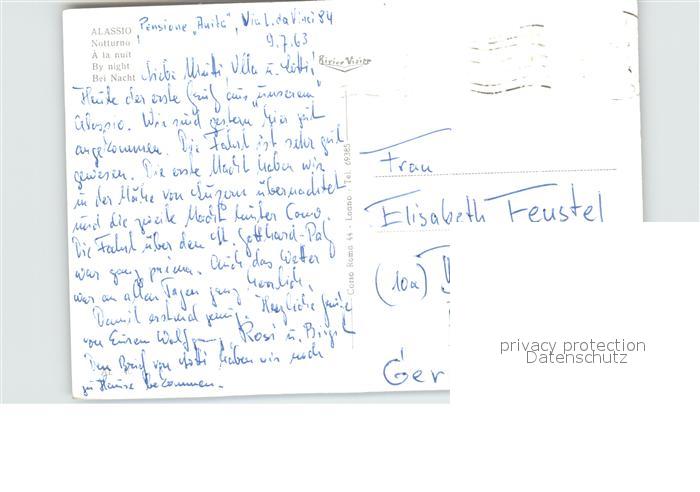 Pensione „Anita", Via L. da Vinci 84
9.7.63
ALASSIO
Notturno
À la nuit
By night
Bei Nacht
Liebe Mutti, Ulla u. Lotti!
Heute der erste Gruß aus „unserem"
Alassio. Wir sind gestern hier gut
angekommen. Die Fahrt ist sehr gut
gewesen. Die erste Nacht haben wir
in der Nähe von Luzern übernachtet
und die zweite Nacht hinter Como.
Die Fahrt über den St. Gotthard-Paß
war ganz prima. Auch das Wetter
war an allen Tagen ganz herrlich.
Damit erstmal genug. Herzliche Grüße
von Eurem Wolfgang, Rosi u. Birgit
Den Brief von Lotti haben wir noch
zu Hause bekommen.
Corso Roma 44 - Loano - Tel. 69385
Frau
Elisabeth Feustel
(10a)
Ger
privacy protection
Datenschutz